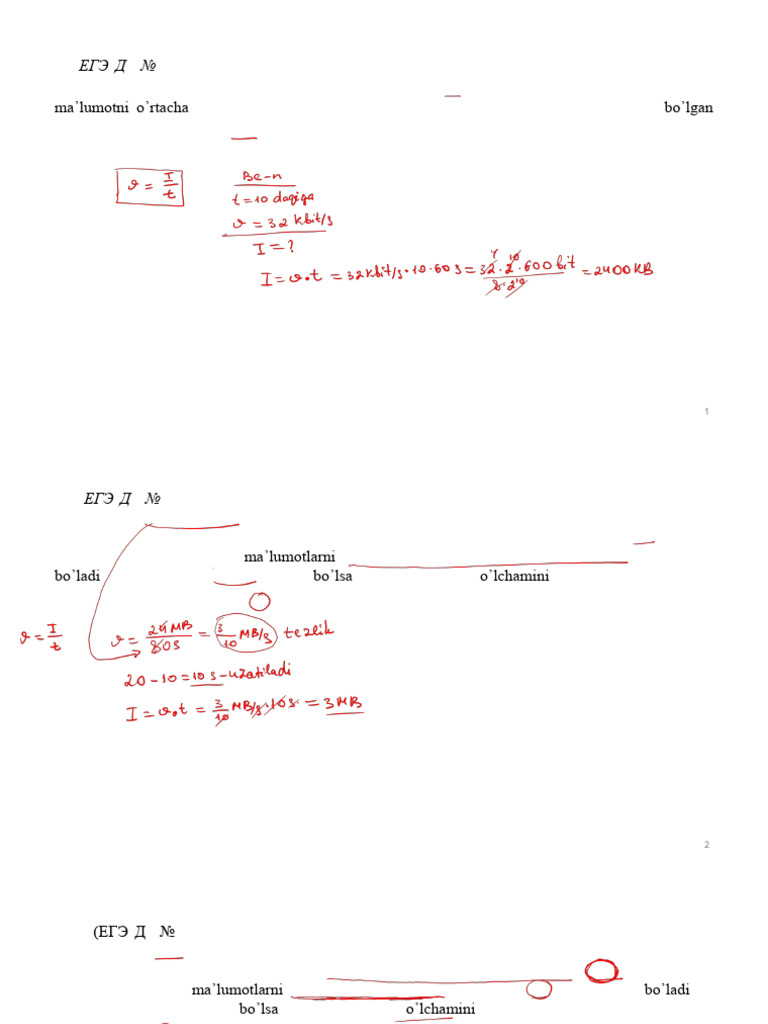 ЕГЭ Д №
ma’lumotni o’rtacha bo’lgan
ϑ = I/t
Be-n
t=10 daqiqa
ϑ = 32 kbit/s
I = ?
I = ϑ·t = 32kbit/s·10·60 s = 32·2^10·600 bit / 8·2^10 = 2400 KB
1
ЕГЭ Д №
ma’lumotlarni
bo’ladi bo’lsa o’lchamini
ϑ = I/t ϑ = 24 MB / 80 s = 3/10 MB/s tezlik
20-10=10 s-uzatiladi
I = ϑ·t = 3/10 MB/s·10 s = 3 MB
2
(ЕГЭ Д №
ma’lumotlarni bo’ladi
bo’lsa o’lchamini